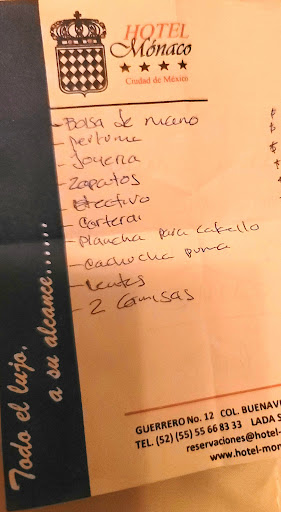 HOTEL
Mónaco
Ciudad de México
- Bolsa de mano $
- perfume $
- Joyeria $
- Zapatos
- Efectivo
- Cartera
- Plancha para cabello
- Cachucha puma
- Lentes
- 2 Camisas
Todo el lujo,
a su alcance......
GUERRERO No. 12 COL. BUENAV
TEL. (52) (55) 55 66 83 33 LADA S
reservaciones@hotel-
www.hotel-mon